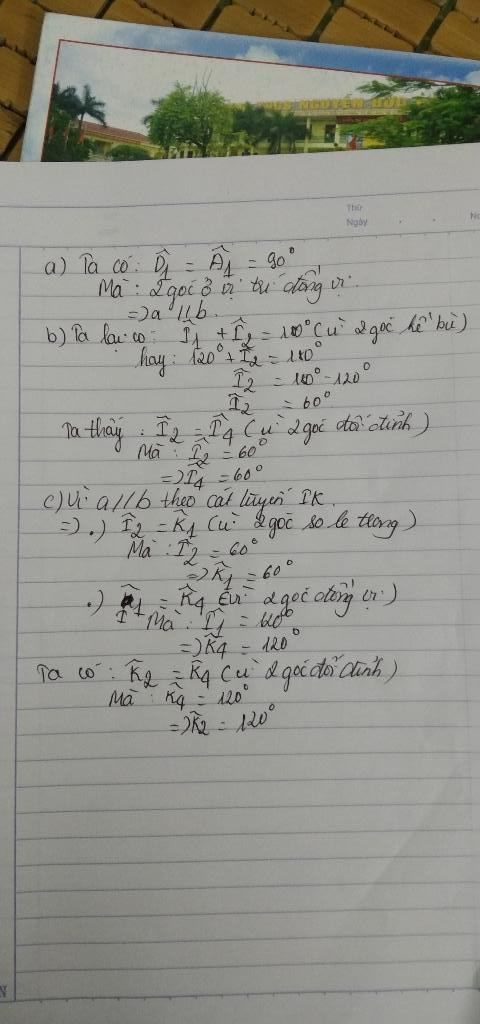 THCS NGUYỄN DU
Thứ
Ngày
a) Ta có: D̂1 = Â1 = 90°
Mà: 2 góc ở vị trí đồng vị.
=> a // b.
b) Ta lại có: Î1 + Î2 = 180° (vì 2 góc kề bù)
hay: 120° + Î2 = 180°
Î2 = 180° - 120°
Î2 = 60°
Ta thấy: Î2 = Î4 (vì 2 góc đối đỉnh)
Mà: Î2 = 60°
=> Î4 = 60°
c) Vì a // b theo cát tuyến IK
=> .) Î2 = K̂1 (vì 2 góc so le trong)
Mà: Î2 = 60°
=> K̂1 = 60°
.) Î1 = K̂4 (vì 2 góc đồng vị)
Mà: Î1 = 120°
=> K̂4 = 120°
Ta có: K̂2 = K̂4 (vì 2 góc đối đỉnh)
Mà: K̂4 = 120°
=> K̂2 = 120°